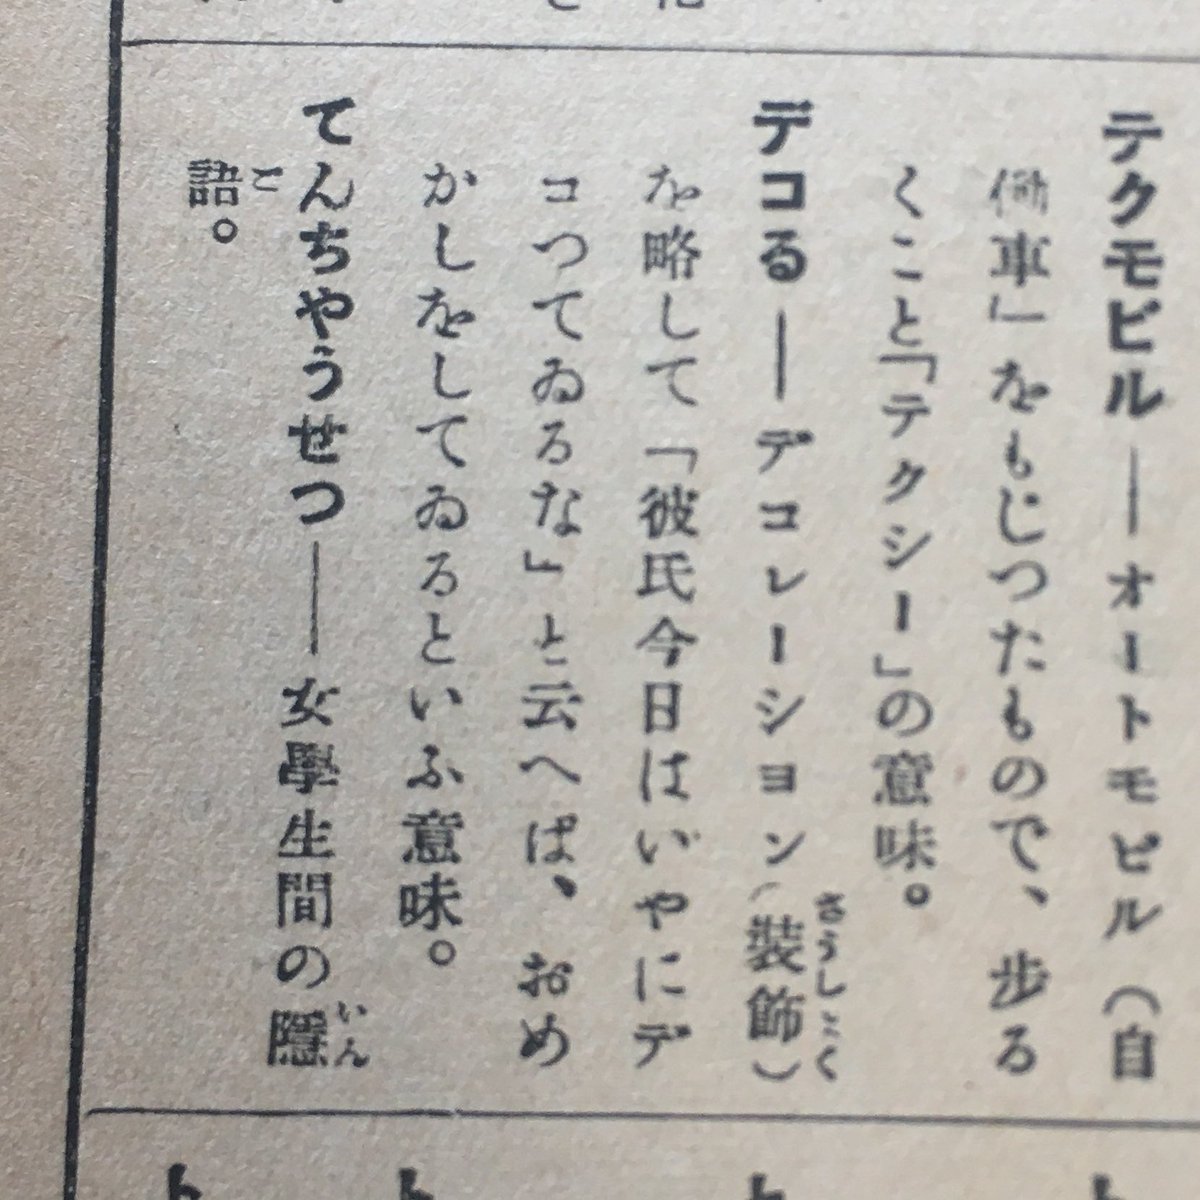 テクモビル――オートモビル（自
働車」をもじつたもので、歩る
くこと「テクシー」の意味。
デコる――デコレーション（装飾）
さうしよく
を略して「彼氏今日はいやにデ
コつてゐるな」と云へば、おめ
かしをしてゐるといふ意味。
てんちやうせつ――女學生間の隱
いん
語。
ご